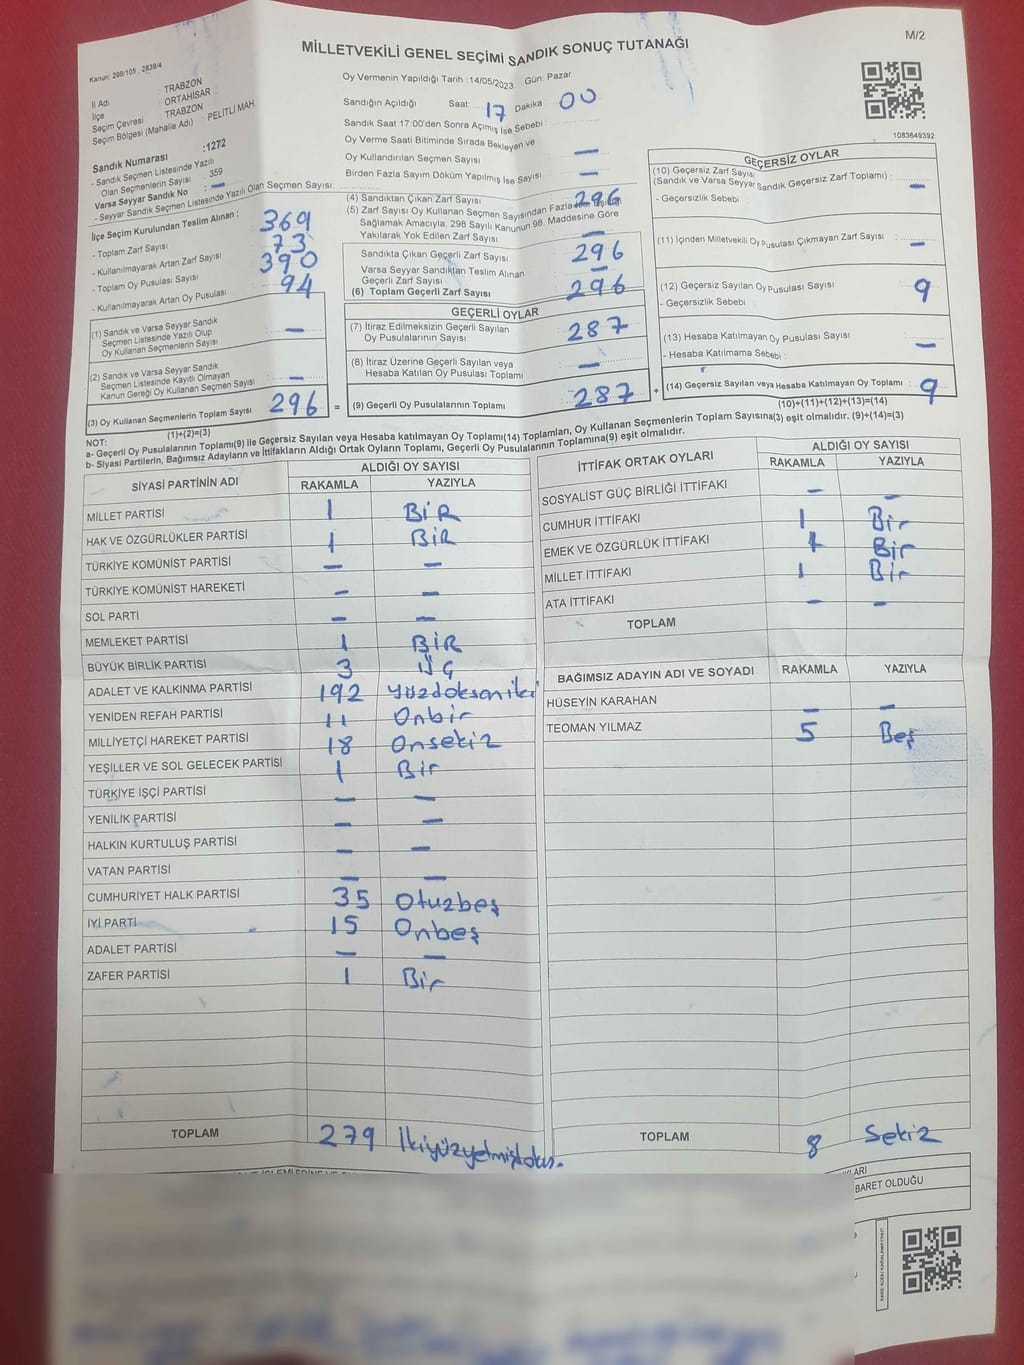 M/2
MİLLETVEKİLİ GENEL SEÇİMİ SANDIK SONUÇ TUTANAĞI
Kanun: 298/105 , 2839/4
Oy Vermenin Yapıldığı Tarih : 14/05/2023 Gün: Pazar
İl Adı : TRABZON
İlçe : ORTAHİSAR
Seçim Çevresi : TRABZON
Seçim Bölgesi (Mahalle Adı) : PELİTLİ MAH.
Sandığın Açıldığı Saat: 17 Dakika : 00
Sandık Saat 17:00'den Sonra Açımış İse Sebebi :
Oy Verme Saati Bitiminde Sırada Bekleyen ve
Oy Kullandırılan Seçmen Sayısı —
Birden Fazla Sayım Döküm Yapılmış İse Sayısı —
1083649392
Sandık Numarası :1272
- Sandık Seçmen Listesinde Yazılı
Olan Seçmenlerin Sayısı : 359
Varsa Seyyar Sandık No : —
- Seyyar Sandık Seçmen Listesinde Yazılı Olan Seçmen Sayısı :
İlçe Seçim Kurulundan Teslim Alınan ;
- Toplam Zarf Sayısı : 369
- Kullanılmayarak Artan Zarf Sayısı : 73
- Toplam Oy Pusulası Sayısı : 390
- Kullanılmayarak Artan Oy Pusulası : 94
(1) Sandık ve Varsa Seyyar Sandık
Seçmen Listesinde Yazılı Olup
Oy Kullanan Seçmenlerin Sayısı : —
(2) Sandık ve Varsa Seyyar Sandık
Seçmen Listesinde Kayıtlı Olmayan
Kanun Gereği Oy Kullanan Seçmen Sayısı : —
(3) Oy Kullanan Seçmenlerin Toplam Sayısı 296 =
(1)+(2)=(3)
(4) Sandıktan Çıkan Zarf Sayısı : 296
(5) Zarf Sayısı Oy Kullanan Seçmen Sayısından Fazla
Sağlamak Amacıyla, 298 Sayılı Kanunun 98. Maddesine Göre
Yakılarak Yok Edilen Zarf Sayısı —
Sandıkta Çıkan Geçerli Zarf Sayısı : 296
Varsa Seyyar Sandıktan Teslim Alınan
Geçerli Zarf Sayısı : —
(6) Toplam Geçerli Zarf Sayısı : 296
GEÇERLİ OYLAR
(7) İtiraz Edilmeksizin Geçerli Sayılan
Oy Pusulalarının Sayısı : 287
(8) İtiraz Üzerine Geçerli Sayılan veya
Hesaba Katılan Oy Pusulası Toplamı : —
(9) Geçerli Oy Pusulalarının Toplamı : 287 +
GEÇERSİZ OYLAR
(10) Geçersiz Zarf Sayısı
(Sandık ve Varsa Seyyar Sandık Geçersiz Zarf Toplamı) : —
- Geçersiz Sebebi
(11) İçinden Milletvekili Oy Pusulası Çıkmayan Zarf Sayısı —
(12) Geçersiz Sayılan Oy Pusulası Sayısı : 9
- Geçersizlik Sebebi
(13) Hesaba Katılmayan Oy Pusulası Sayısı —
- Hesaba Katılmama Sebebi :
(14) Geçersiz Sayılan veya Hesaba Katılmayan Oy Toplamı : 9
(10)+(11)+(12)+(13)=(14)
NOT:
a- Geçerli Oy Pusulalarının Toplamı(9) ile Geçersiz Sayılan veya Hesaba katılmayan Oy Toplamı(14) Toplamları, Oy Kullanan Seçmenlerin Toplam Sayısına(3) eşit olmalıdır. (9)+(14)=(3)
b- Siyasi Partilerin, Bağımsız Adayların ve İttifakların Aldığı Ortak Oyların Toplamı, Geçerli Oy Pusulalarının Toplamına(9) eşit olmalıdır.
SİYASİ PARTİNİN ADI ALDIĞI OY SAYISI
RAKAMLA YAZIYLA
MİLLET PARTİSİ 1 BİR
HAK VE ÖZGÜRLÜKLER PARTİSİ 1 BİR
TÜRKİYE KOMÜNİST PARTİSİ — —
TÜRKİYE KOMÜNİST HAREKETİ — —
SOL PARTİ — —
MEMLEKET PARTİSİ 1 BİR
BÜYÜK BİRLİK PARTİSİ 3 ÜÇ
ADALET VE KALKINMA PARTİSİ 192 Yüzdoksaniki
YENİDEN REFAH PARTİSİ 11 Onbir
MİLLİYETÇİ HAREKET PARTİSİ 18 Onsekiz
YEŞİLLER VE SOL GELECEK PARTİSİ 1 Bir
TÜRKİYE İŞÇİ PARTİSİ — —
YENİLİK PARTİSİ — —
HALKIN KURTULUŞ PARTİSİ — —
VATAN PARTİSİ — —
CUMHURİYET HALK PARTİSİ 35 Otuzbeş
İYİ PARTİ 15 Onbeş
ADALET PARTİSİ — —
ZAFER PARTİSİ 1 Bir
TOPLAM 279 İkiyüzyetmişdoks.
İTTİFAK ORTAK OYLARI ALDIĞI OY SAYISI
RAKAMLA YAZIYLA
SOSYALİST GÜÇ BİRLİĞİ İTTİFAKI — —
CUMHUR İTTİFAKI 1 Bir
EMEK VE ÖZGÜRLÜK İTTİFAKI 1 Bir
MİLLET İTTİFAKI 1 Bir
ATA İTTİFAKI — —
TOPLAM
BAĞIMSIZ ADAYIN ADI VE SOYADI RAKAMLA YAZIYLA
HÜSEYİN KARAHAN — —
TEOMAN YILMAZ 5 Beş
TOPLAM 8 Sekiz
BARET OLDUĞU